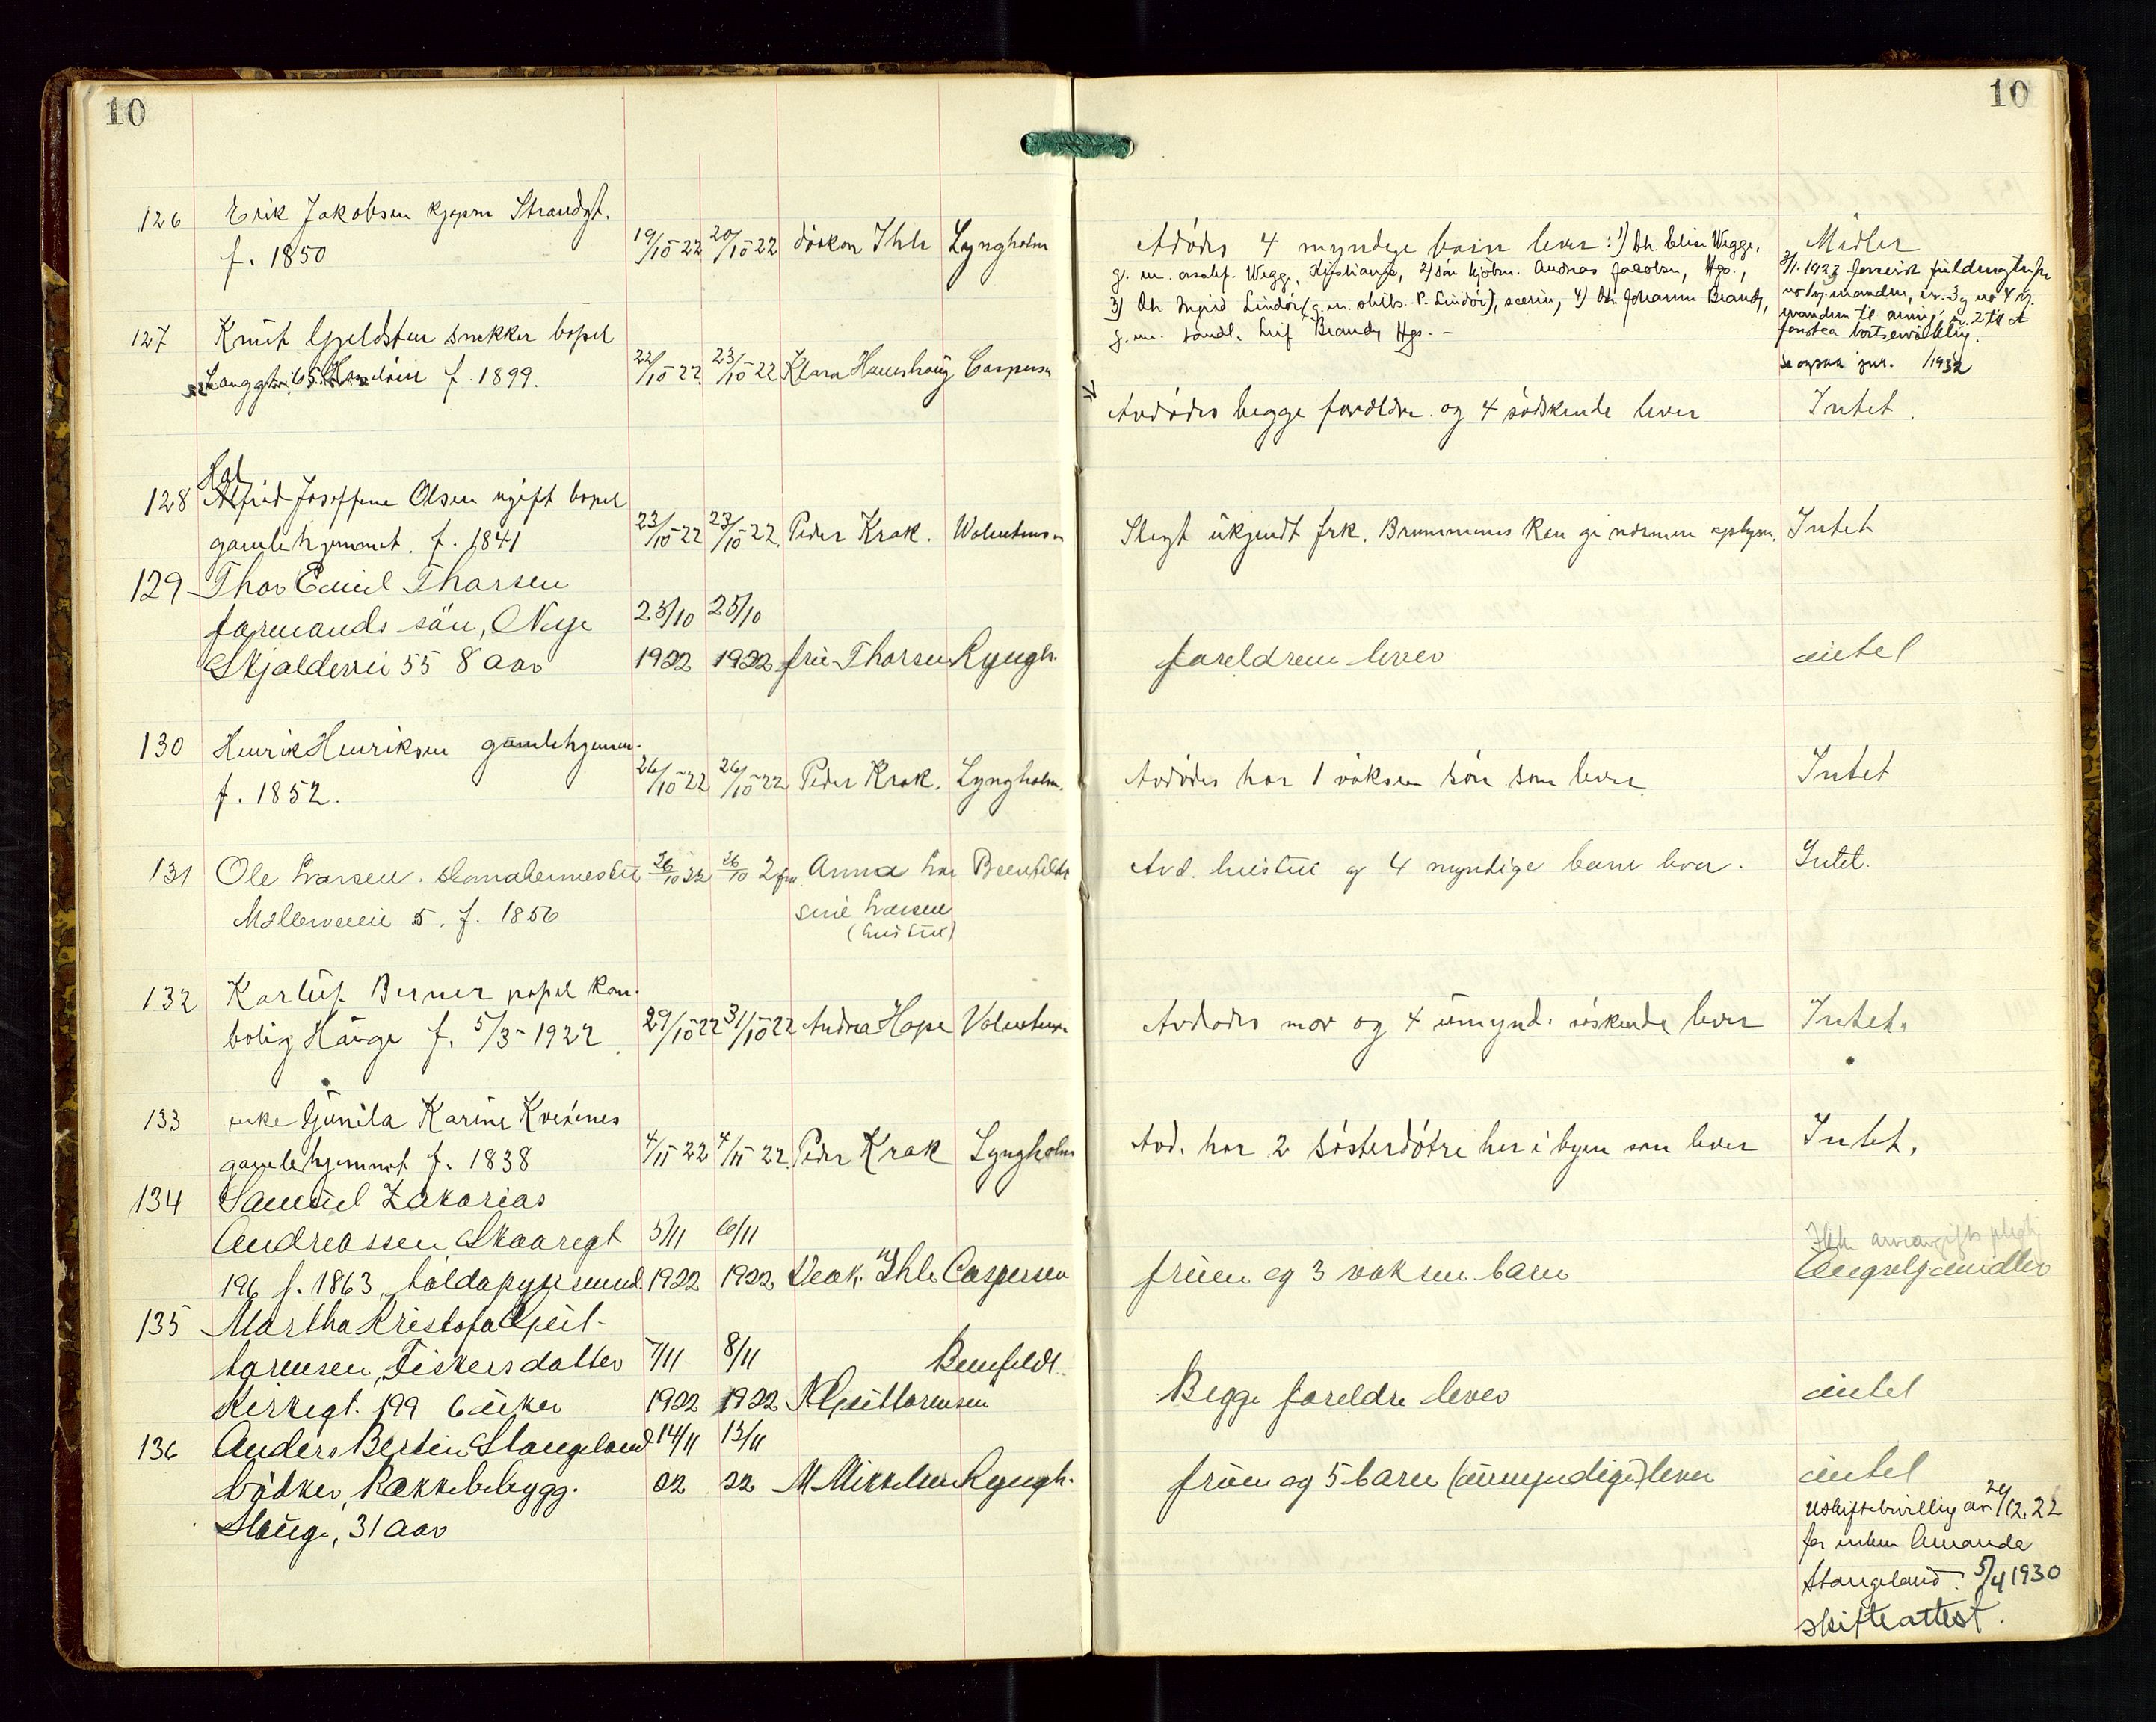 10
10
126 Erik Jakobsen kjøpm Strandgt.
f. 1850 19/10 22 20/10 22 diakon Ihle Lyngholm
Avdødes 4 myndige barn lever: 1) Dtr. Elise Wegge,
g. m. Wegge, Kristiania, 2) søn kjøbm. Andreas Jacobsen, Hgs.,
3) Dtr. Ingrid Lindøe (g. m. skibs. P. Lindøe), 4) Dtr. Johanne Brandy,
g. m. Leif Brandy Hgs. -
Midler
3/1. 1923
1932
127 Knut Gjeldsten snekker bopel
Langgtn. 65 f. 1899. 22/10 22 23/10 22 Klara Haueshaug Caspersen
Avdødes begge forældre og 4 sødskende lever Intet.
Hal
128 Alfrid Josefine Olsen ugift bopel
gamlehjemmet. f. 1841 23/10 22 23/10 22. Peder Krak. Wolentinsen
Slegt ukjendt frk. Brummenes kan gi nærmere oplysn. Intet
129 Thor Emil Thorsen
formands søn, Nye 23/10 25/10
Skjoldevei 55 8 aar 1922 1922 frue Thorsen Lyngh.
foreldrene lever intet
130 Henrik Henriksen gamlehjemm.
f. 1852. 26/10 22 26/10 22 Peder Krak. Lyngholm.
Avdødes har 1 voksen søn som lever Intet
131 Ole Larsen. 26/10 22 26/10 Anna Lar Beenfeldt
Møllerveien 5. f. 1856 sine Larsen
(hustru)
Avd. hustru og 4 myndige barn lever. Intet.
132 Karluf Berner bopel Kom.
bolig Hauge f. 5/3-1922 29/10 22 31/10 22 Andrea Hope Volentinsen
Avdødes mor og 4 umynd. søskende lever Intet.
133 enke Gunila Karine Kvesines
gamlehjemmet f. 1838 4/11 22 4/11 22. Peder Krak Lyngholm
Avd. har 2 søsterdøtre her i byen som lever Intet.
134 Samuel Zakarias
Andreassen Skaaregt 5/11 6/11
196 f. 1863, toldopsynsmd. 1922 1922 Deak. Ihle Caspersen
fruen og 3 voksne barn
Ikke arveavgifts pligtig
Angivelj midler
135 Martha Kristofa Guit-
tormsen, Fiskersdatter 7/11 8/11 Benfeldt
Kirkegt. 199 6 uker 1922 1922 N Guittormsen
Begge foreldre lever intet
136 Anders Bertin Stangeland 14/11 13/11
bødker, Rækkebebygg. 22 22 M Mikkelsen Lyngh.
Hauge, 31 aar
fruen og 5 barn (umyndige) lever intet
Uskiftebevillig av 29/12.22
for enken Amanda
Stangeland. 5/4 1930
skifteattest.